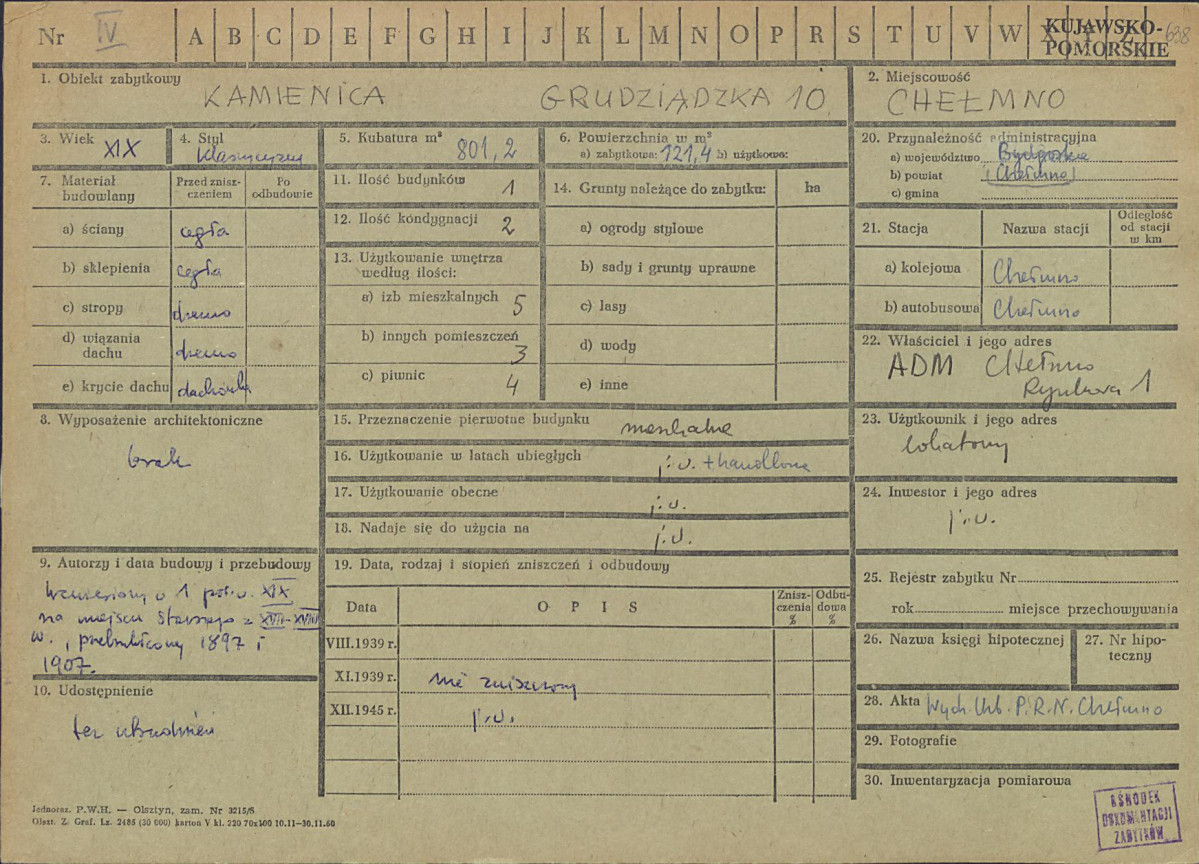 Nr IV A B C D E F G H I J K L M N O P R S T U V W X Y Z 638
KUJAWSKO-
POMORSKIE
1. Obiekt zabytkowy
KAMIENICA GRUDZIĄDZKA 10
2. Miejscowość
CHEŁMNO
3. Wiek XIX
4. Styl
klasycyzm
5. Kubatura m³ 801,2
6. Powierzchnia w m²
a) zabytkowa: 121,4 b) użytkowa:
7. Materiał budowlany
Przed zniszczeniem
Po odbudowie
a) ściany cegła
b) sklepienia cegła
c) stropy drewno
d) wiązania dachu drewno
e) krycie dachu dachówka
8. Wyposażenie architektoniczne
brak
9. Autorzy i data budowy i przebudowy
wzniesiony w 1 poł. w. XIX
na miejscu starszego z XVII-XVIII
w., przebudowany 1897 i
1907.
10. Udostępnienie
bez utrudnień
11. Ilość budynków 1
12. Ilość kondygnacji 2
13. Użytkowanie wnętrza
według ilości:
a) izb mieszkalnych 5
b) innych pomieszczeń 3
c) piwnic 4
14. Grunty należące do zabytku: ha
a) ogrody stylowe
b) sady i grunty uprawne
c) lasy
d) wody
e) inne
15. Przeznaczenie pierwotne budynku mieszkalne
16. Użytkowanie w latach ubiegłych j.w. + handlowe
17. Użytkowanie obecne j.w.
18. Nadaje się do użycia na j.w.
19. Data, rodzaj i stopień zniszczeń i odbudowy
Data OPIS Zniszczenia % Odbudowa %
VIII.1939 r.
XI.1939 r. nie zniszczony
XII.1945 r. j.w.
20. Przynależność administracyjna
a) województwo Bydgoskie
b) powiat (Chełmno)
c) gmina
21. Stacja Nazwa stacji Odległość od stacji w km
a) kolejowa Chełmno
b) autobusowa Chełmno
22. Właściciel i jego adres
ADM Chełmno
Rynkowa 1
23. Użytkownik i jego adres
lokatorzy
24. Inwestor i jego adres
j.w.
25. Rejestr zabytku Nr
rok miejsce przechowywania
26. Nazwa księgi hipotecznej
27. Nr hipoteczny
28. Akta Wydz. Urb. P.R.N. Chełmno
29. Fotografie
30. Inwentaryzacja pomiarowa
OŚRODEK
DOKUMENTACJI
ZABYTKÓW
Jednoraz. P.W.H. — Olsztyn, zam. Nr 3215/S
Olszt. Z. Graf. Lz. 2485 (30 000) karton V kl. 220 70x100 10.11—30.11.60